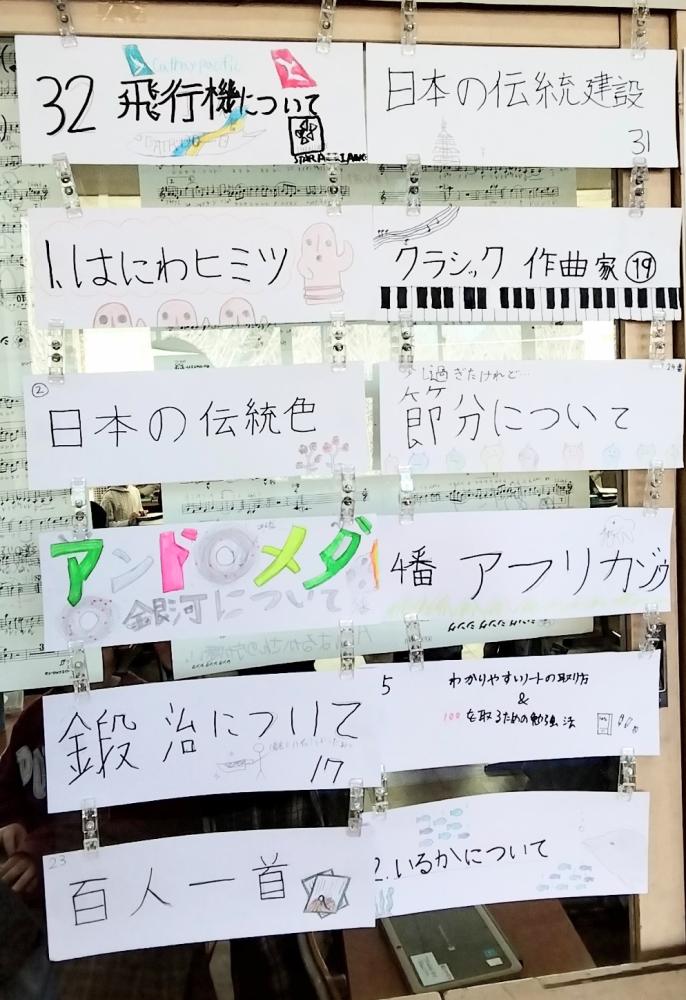 Cathay pacific
32 飛行機について
STAR ALLIANCE
日本の伝統建設
31
1. はにわヒミツ
クラシック 作曲家 19
②
日本の伝統色
少し過ぎたけれど…
24番
節分について
アンドロメダ
銀河について
4番 アフリカゾウ
5
わかりやすいノートの取り方
&
100を取るための勉強法
鍛治について
17
2. いるかについて
23
百人一首